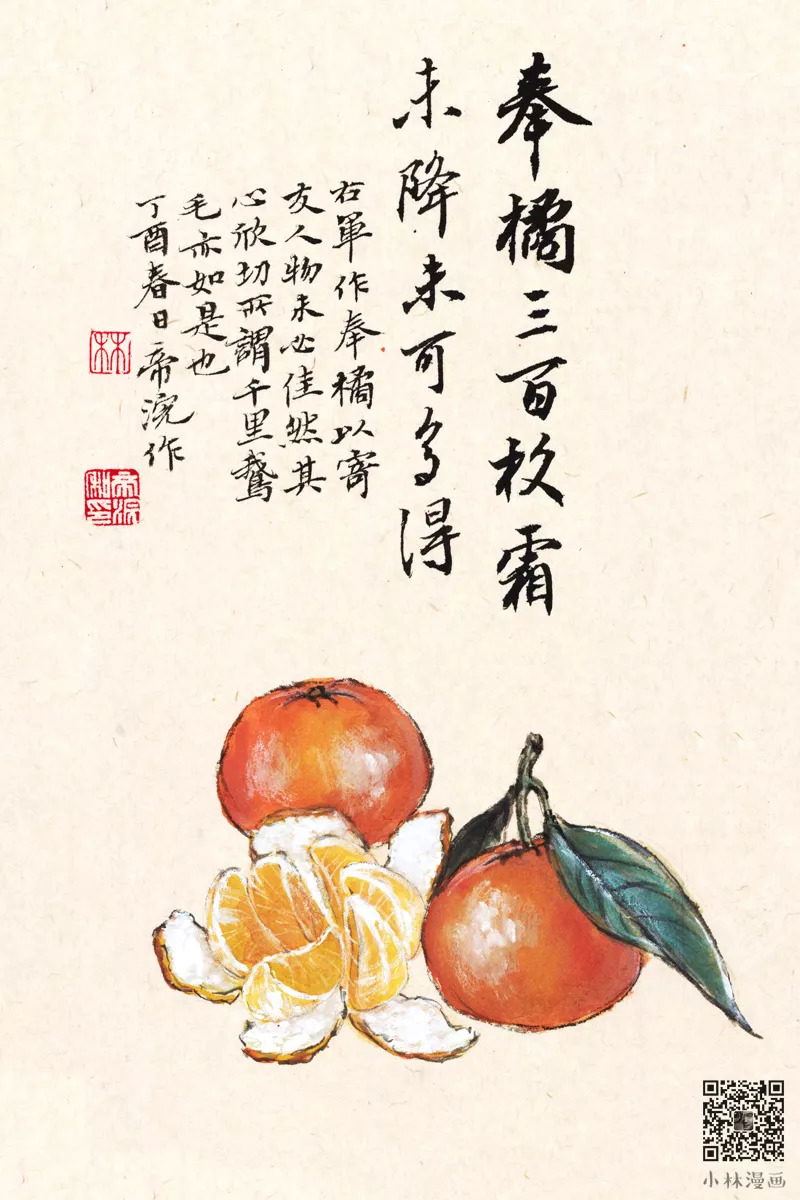 奉橘三百枚霜
未降未可多得
右軍作奉橘以寄
友人物未必佳然其
心欣切所謂千里鵞
毛亦如是也
丁酉春日帝浣作
林
小林漫画